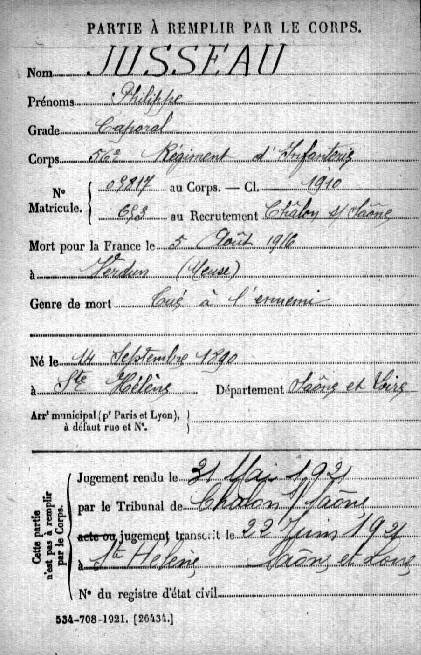 PARTIE À REMPLIR PAR LE CORPS.
Nom JUSSEAU
Prénoms Philippe
Grade Caporal
Corps 56e Régiment d'Infanterie
N° Matricule. { 09817 au Corps. — Cl. 1910
693 au Recrutement Châlon s/ Saône
Mort pour la France le 5 Août 1916
à Verdun (Meuse)
Genre de mort Tué à l'ennemi
Né le 14 Septembre 1890
à Ste Hélène Département Saône et Loire
Arrt municipal (pr Paris et Lyon), à défaut rue et N°.
Cette partie n'est pas à remplir par le Corps.
Jugement rendu le 21 Mai 1921
par le Tribunal de Chalon s/ Saône
acte ou jugement transcrit le 22 Juin 1921
à Ste Hélène Saône et Loire
N° du registre d'état civil
534-708-1921. [26434.]